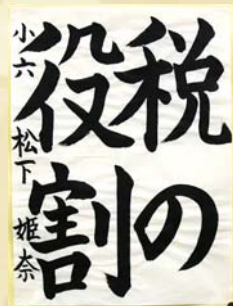 税の
役割
小六 松下 姫奈